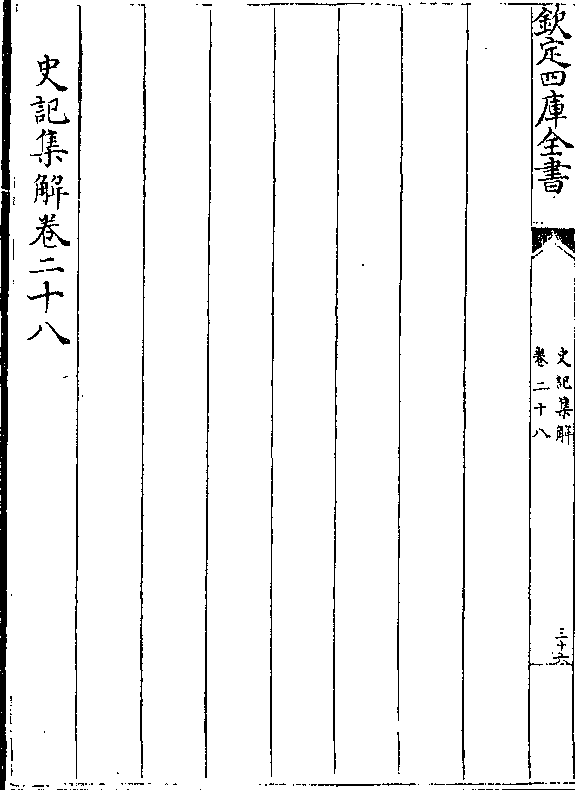 欽定四庫全書
史記集解
卷二十八
三十六
史記集解卷二十八